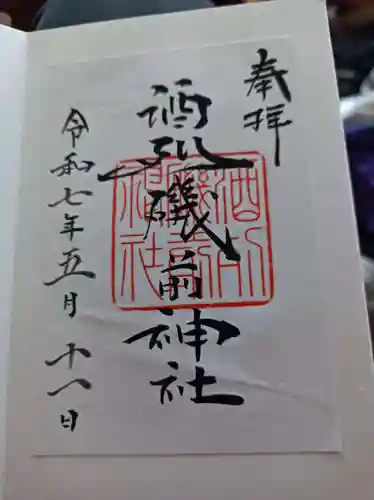 奉拝
酒列磯前神社
令和七年五月十八日